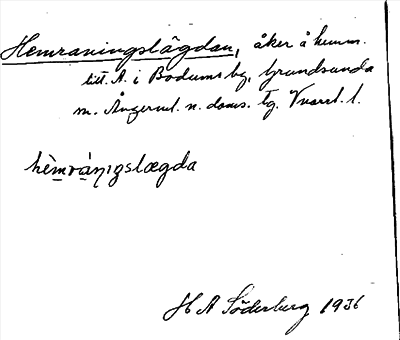 Hemraningslägdan, åker å hemm.
litt. A. i Bodums by, Grundsunda
m. Ångerml. n. doms. tg. Vnorrl. l.
hèmrànıgslægda
H A Söderberg 1936